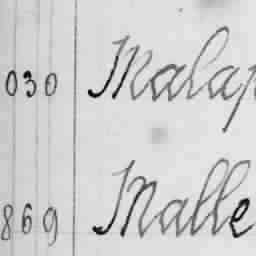 030 Malap
869 Malle